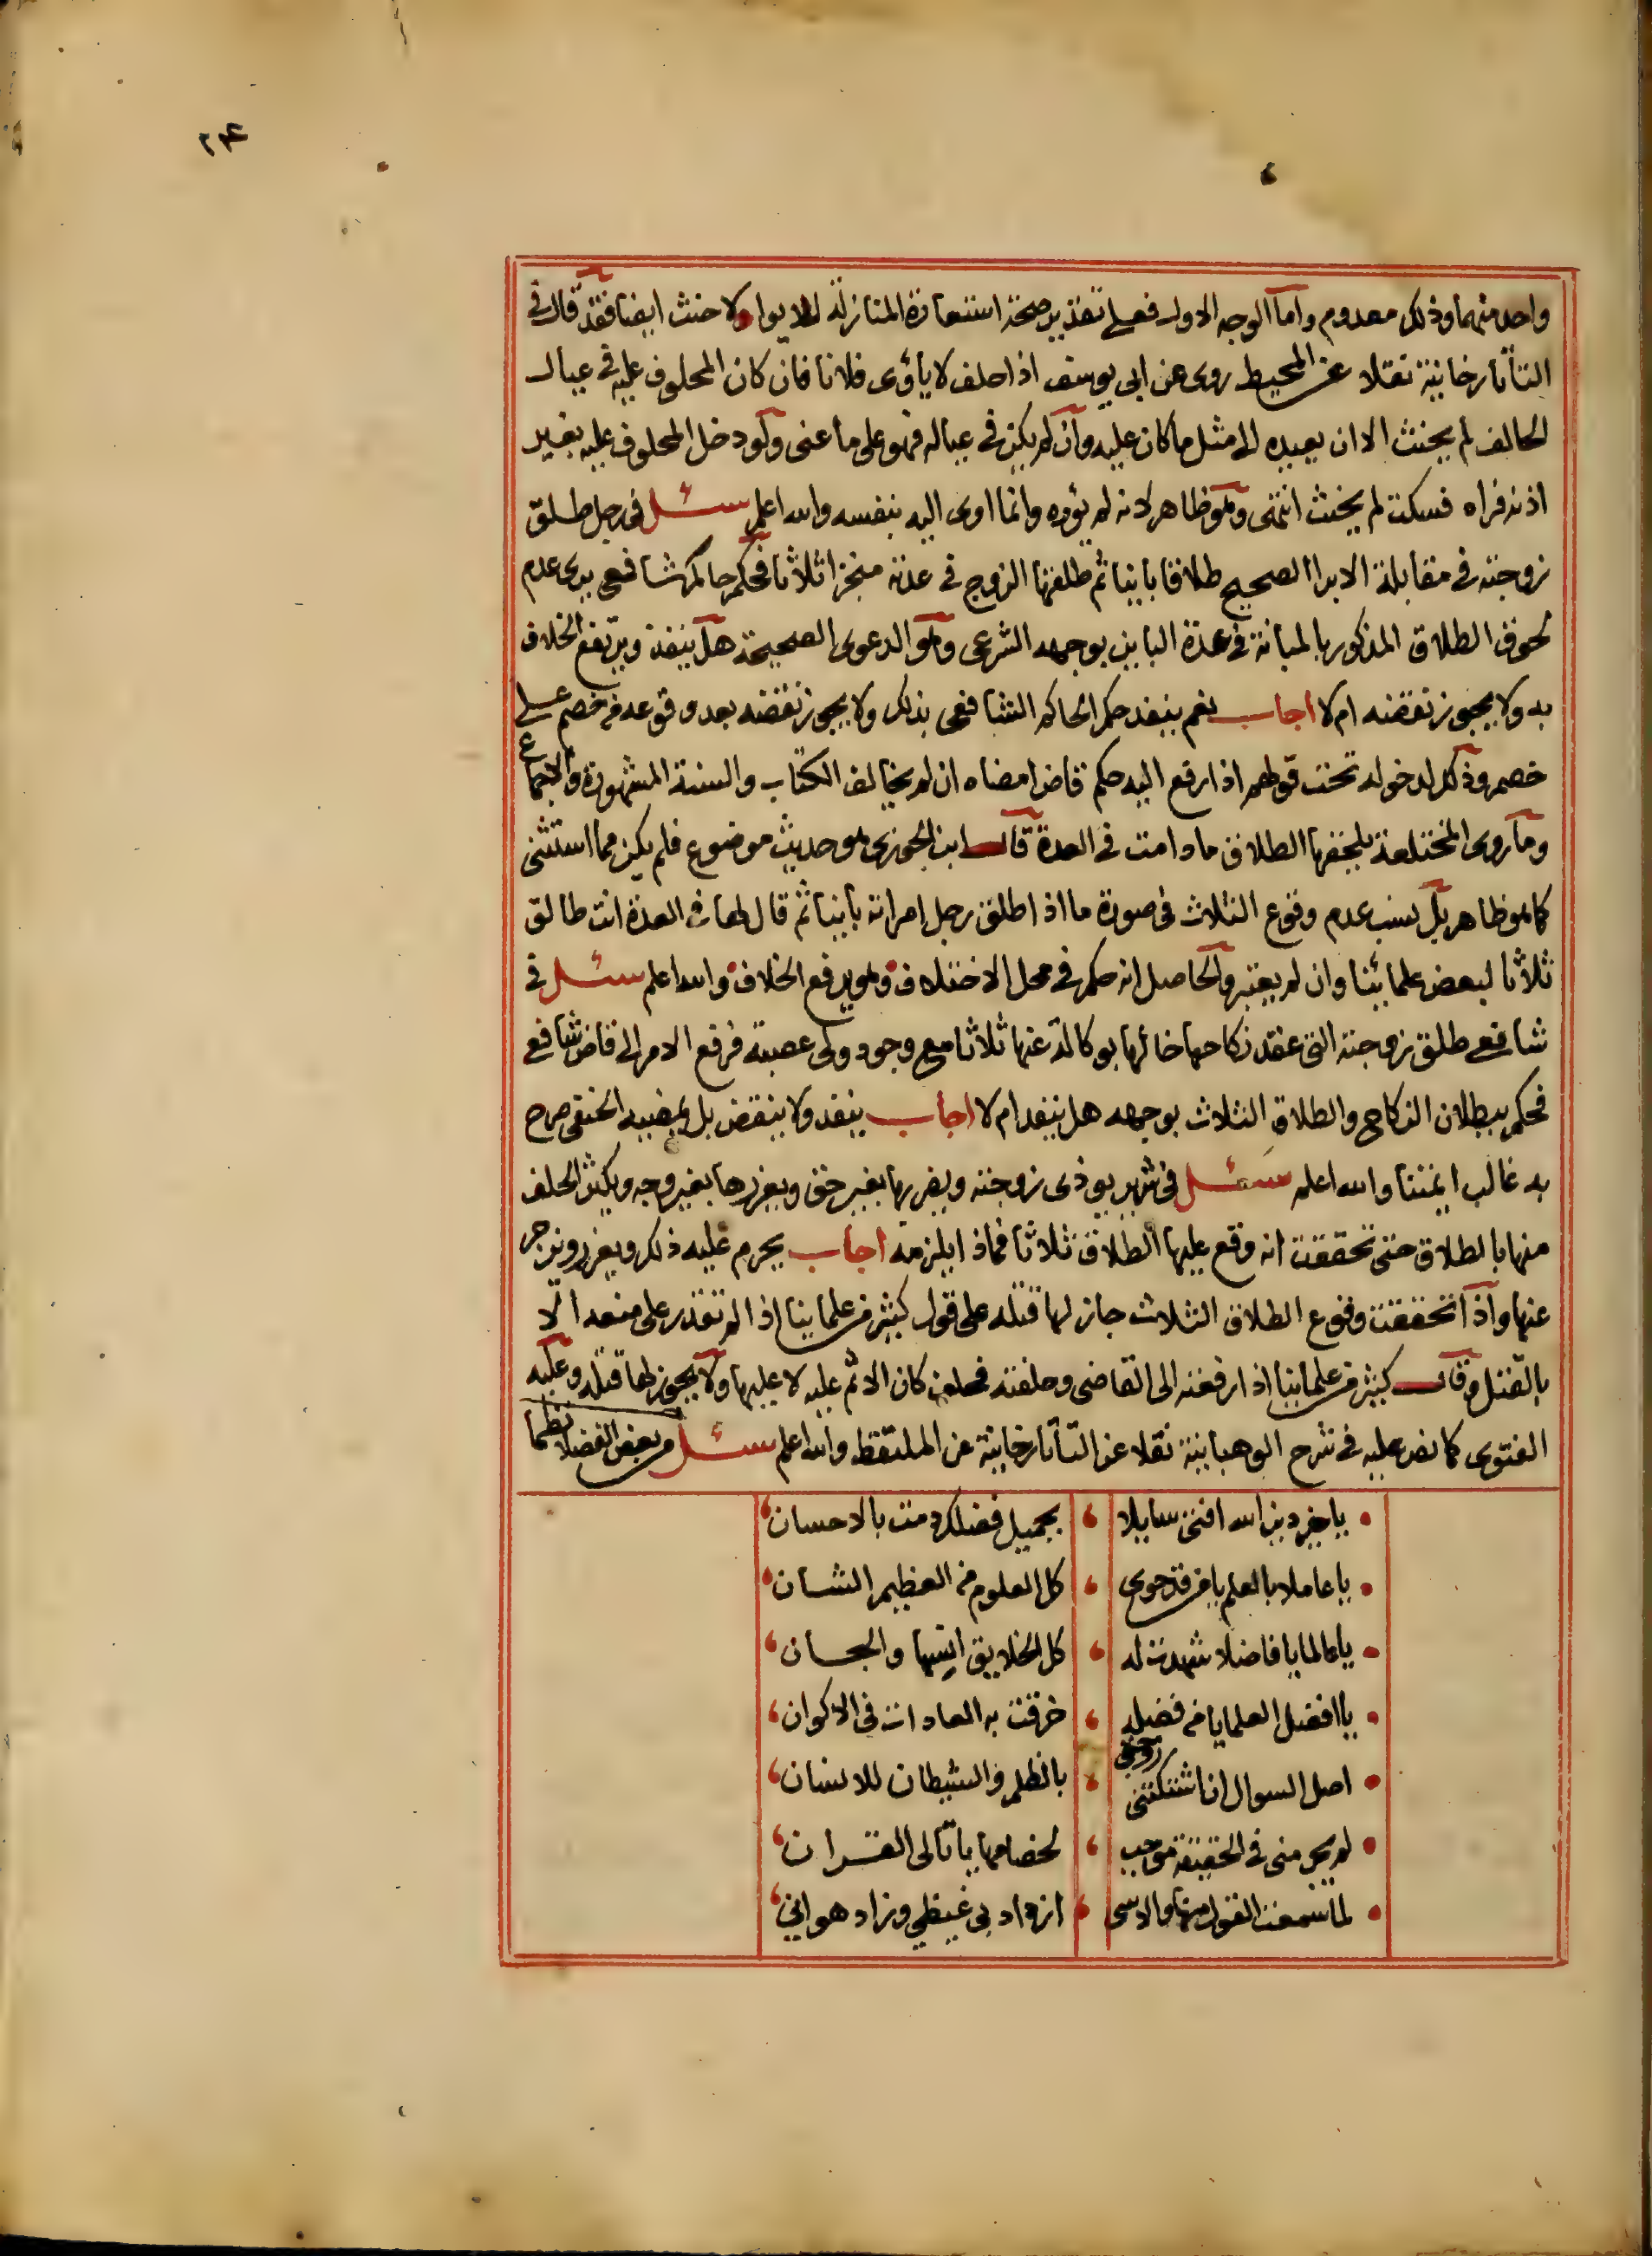 ٢٤
واحد منهما وذلك معدوم واما الوجه الاول فعلى تقدير صحة استعارة المنازلة للايواء لا حنث ايضا فقد قال في
التاتارخانية نقلا عن المحيط روى عن ابى يوسف اذا حلف لا يأوى فلانا فان كان المحلوف عليه في عيال
الحالف لم يحنث الا ان يعيده الى مثل ما كان عليه وان لم يكن في عياله فهو على ما عنى ولو دخل المحلوف عليه بغير
اذنه فراه فسكت لم يحنث انتهى وهو ظاهر لانه لم يؤوه وانما اوى اليه بنفسه والله اعلم سئل في رجل طلق
زوجته في مقابلة الابرا الصحيح طلاقا باينا ثم طلقها الزوج في عدته منجزا ثلاثا فحكم حاكم شافعى يرى عدم
لحوق الطلاق المذكور بالمبانة في عدة الباين بوجهه الشرعى وهو الدعوى الصحيحة هل ينفذ ويرتفع الخلاف
به ولا يجوز نقضه ام لا اجاب نعم ينفذ حكم الحاكم الشافعى بذلك ولا يجوز نقضه بعد وقوعه من خصم على
خصم وذلك لدخوله تحت قولهم اذا رفع اليه حكم قاض امضاه ان لم يخالف الكتاب والسنة المشهورة والاجماع
وما روى المختلعة يلحقها الطلاق ما دامت في العدة قال ابن الجوزى هو حديث موضوع فلم يكن مما استثنى
كما هو ظاهر بل نسب عدم وقوع الثلاث في صورة ما اذا طلق رجل امراته باينا ثم قال لها في العدة انت طالق
ثلاثا لبعض علمائنا وان لم يعتبر والحاصل انه حكم في محل الاختلاف وهو يرفع الخلاف والله اعلم سئل في
شافعى طلق زوجته التى عقد نكاحها خالها بوكالة عنها ثلاثا مع وجود ولى عصبة فرفع الامر الى قاض شافعى
فحكم ببطلان النكاح والطلاق الثلاث بوجهه هل ينفد ام لا اجاب ينفد ولا ينقض بل يمضيه الحنفى صرح
به غالب ايمتنا والله اعلم سئل في شرير يوذى زوجته ويضربها بغير حق ويعزرها بغير وجه ويكثر الحلف
منها بالطلاق حتى تحققت انه وقع عليها الطلاق ثلاثا فماذا يلزمه اجاب يحرم عليه ذلك ويعزر ويزجر
عنها واذا تحققت وقوع الطلاق الثلاث جاز لها قتله على قول كثير من علماينا اذا لم تقدر على منعه الا
بالقتل وقال كثير من علماينا اذا رفعته الى القاضى وحلفته فحلف كان الاثم عليه لا عليها ولا يجوز لها قتله وعليه
الفتوى كما نص عليه في شرح الوهبانية نقلا عن التاتارخانية عن الملتقط والله اعلم سئل من بعض الفضلا نظما
يا خير دين الله افتى سايلا ، بجميل فضلك دمت بالاحسان
يا عاملا بالعلم يا من قد حوى ، كل العلوم من العظيم الشان
يا عالما يا فاضلا شهدت له ، كل الخلايق انسها والجان
يا افضل العلما يا من فضله ، خرقت به العادات في الاكوان
اصل السوال انا شتكتنى زوجتى ، بالظلم والشيطان للانسان
لم يجر منى في الحقيقة موجب ، لخصامها يا تالى القران
لما سمعت القول منها والاسى ، ازداد بى غيظى وزاد هوانى